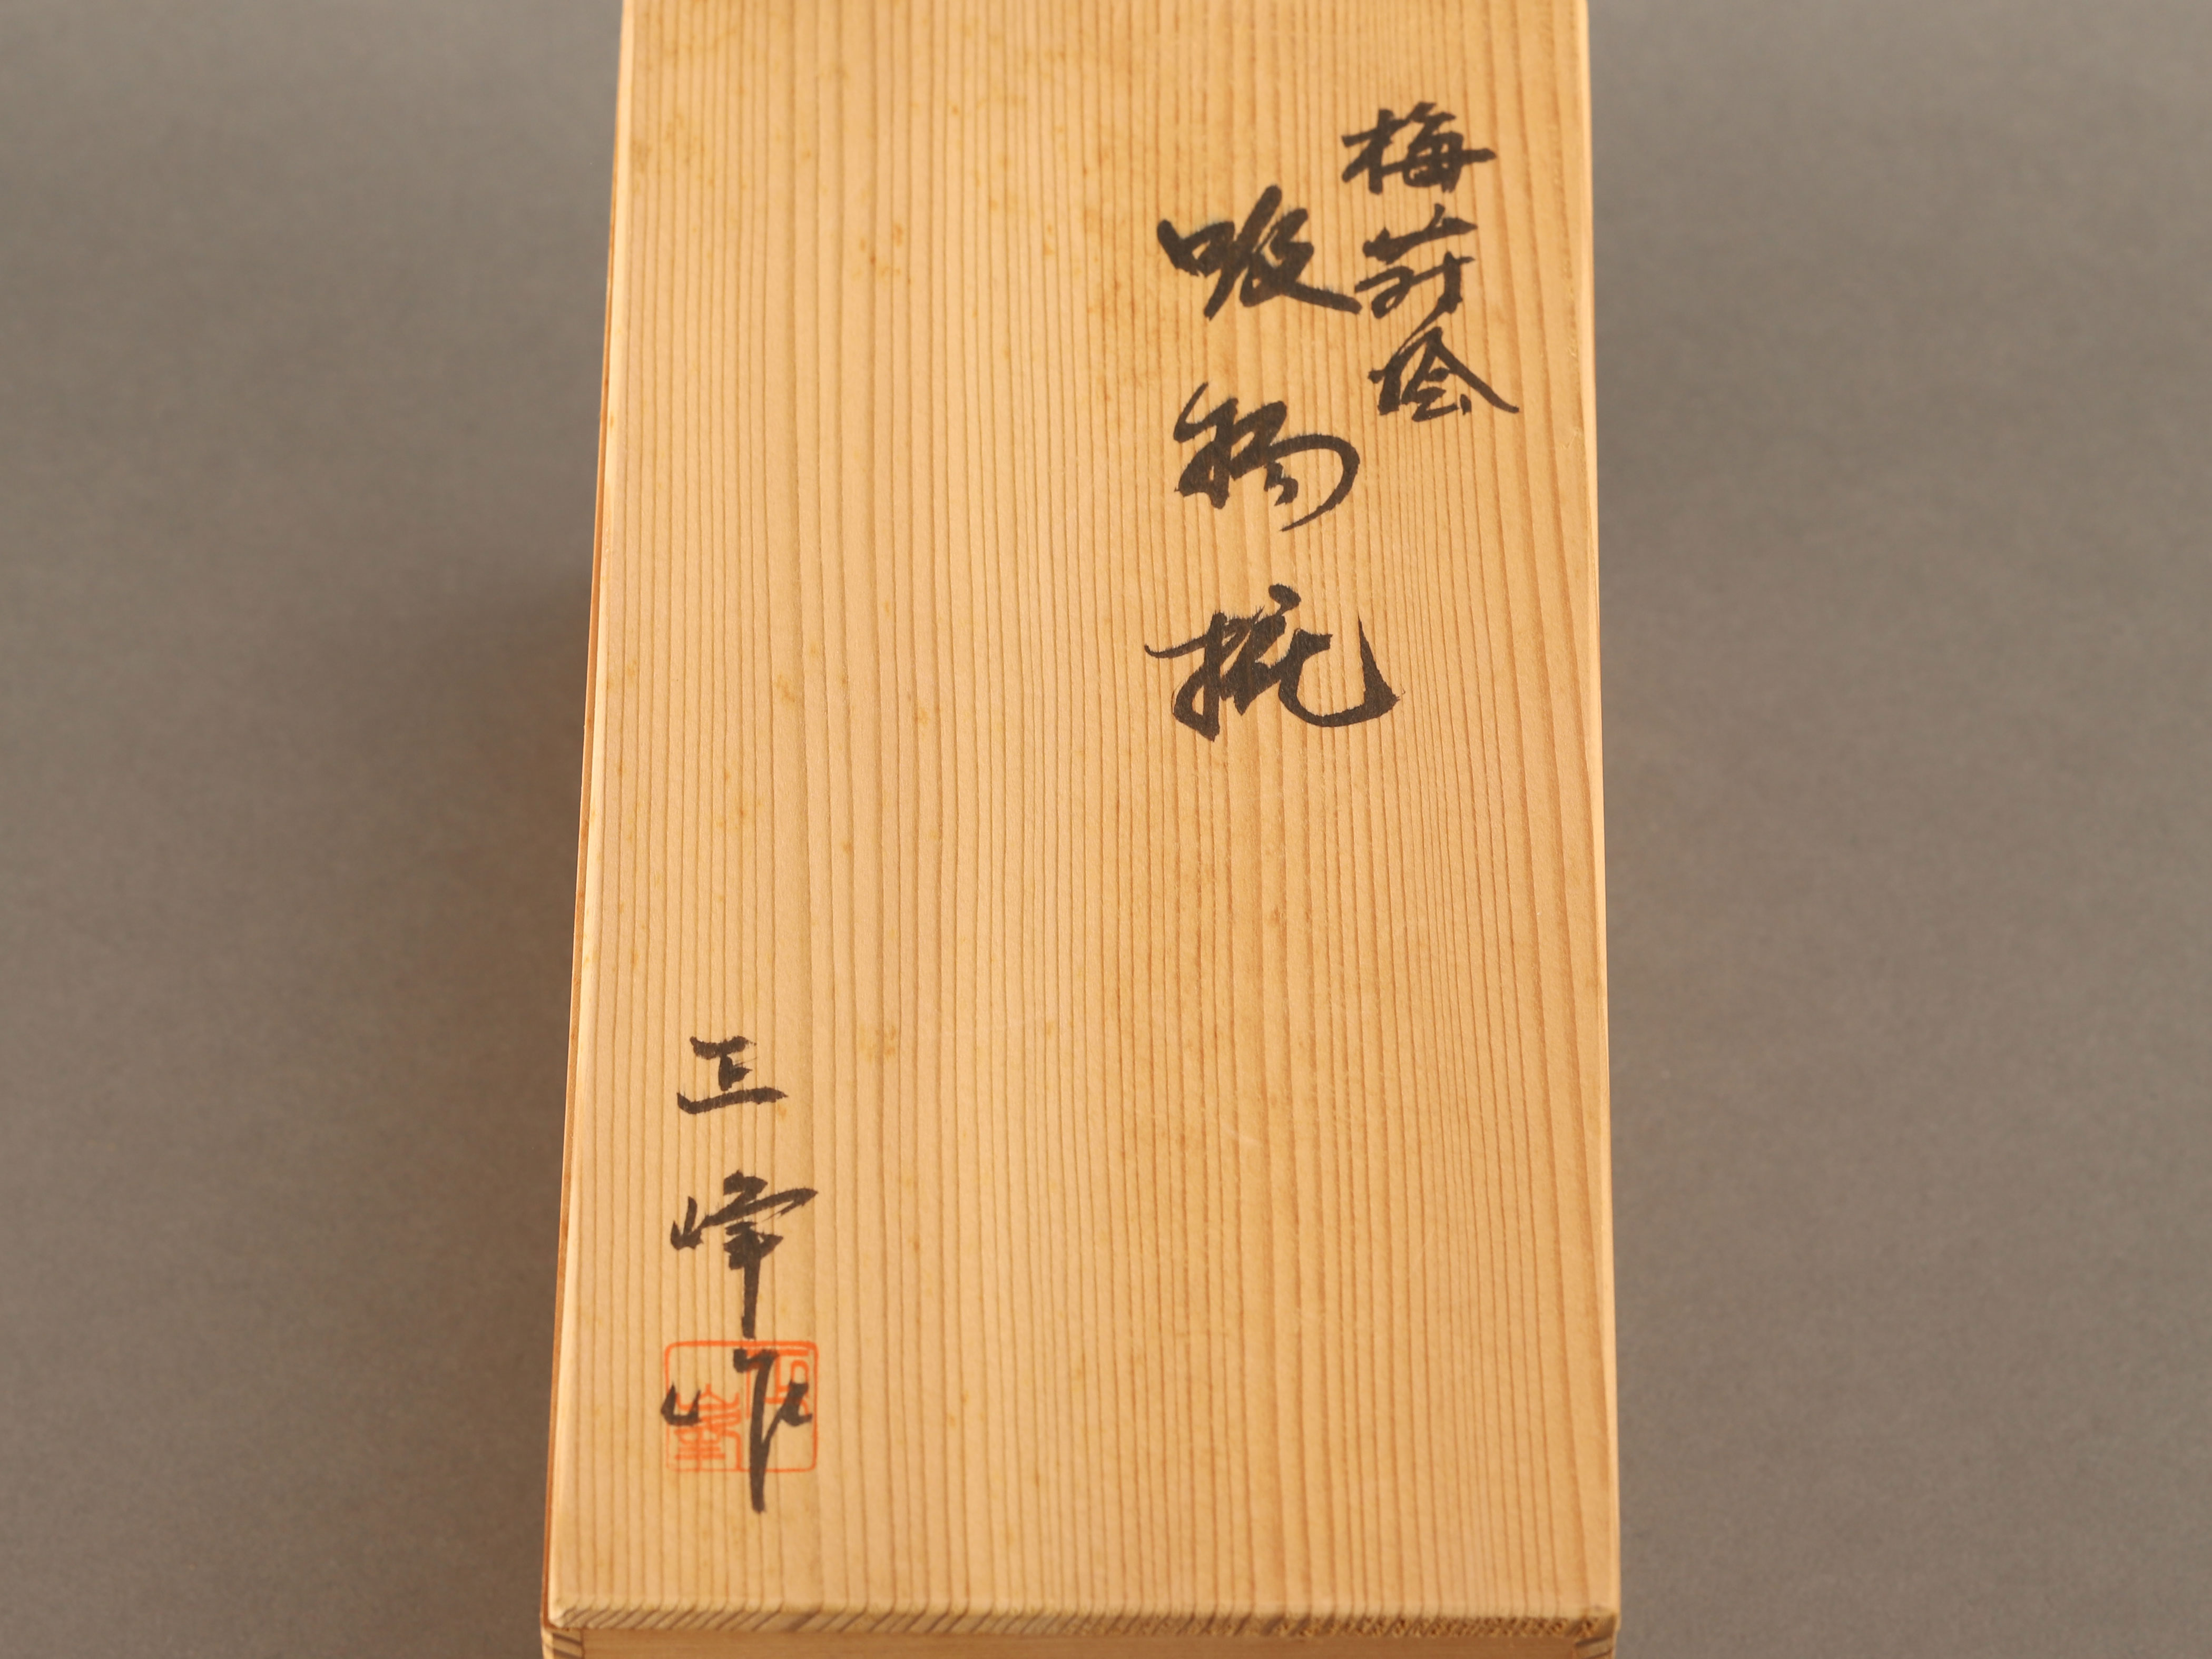 梅蒔絵
吸物椀
正峰作